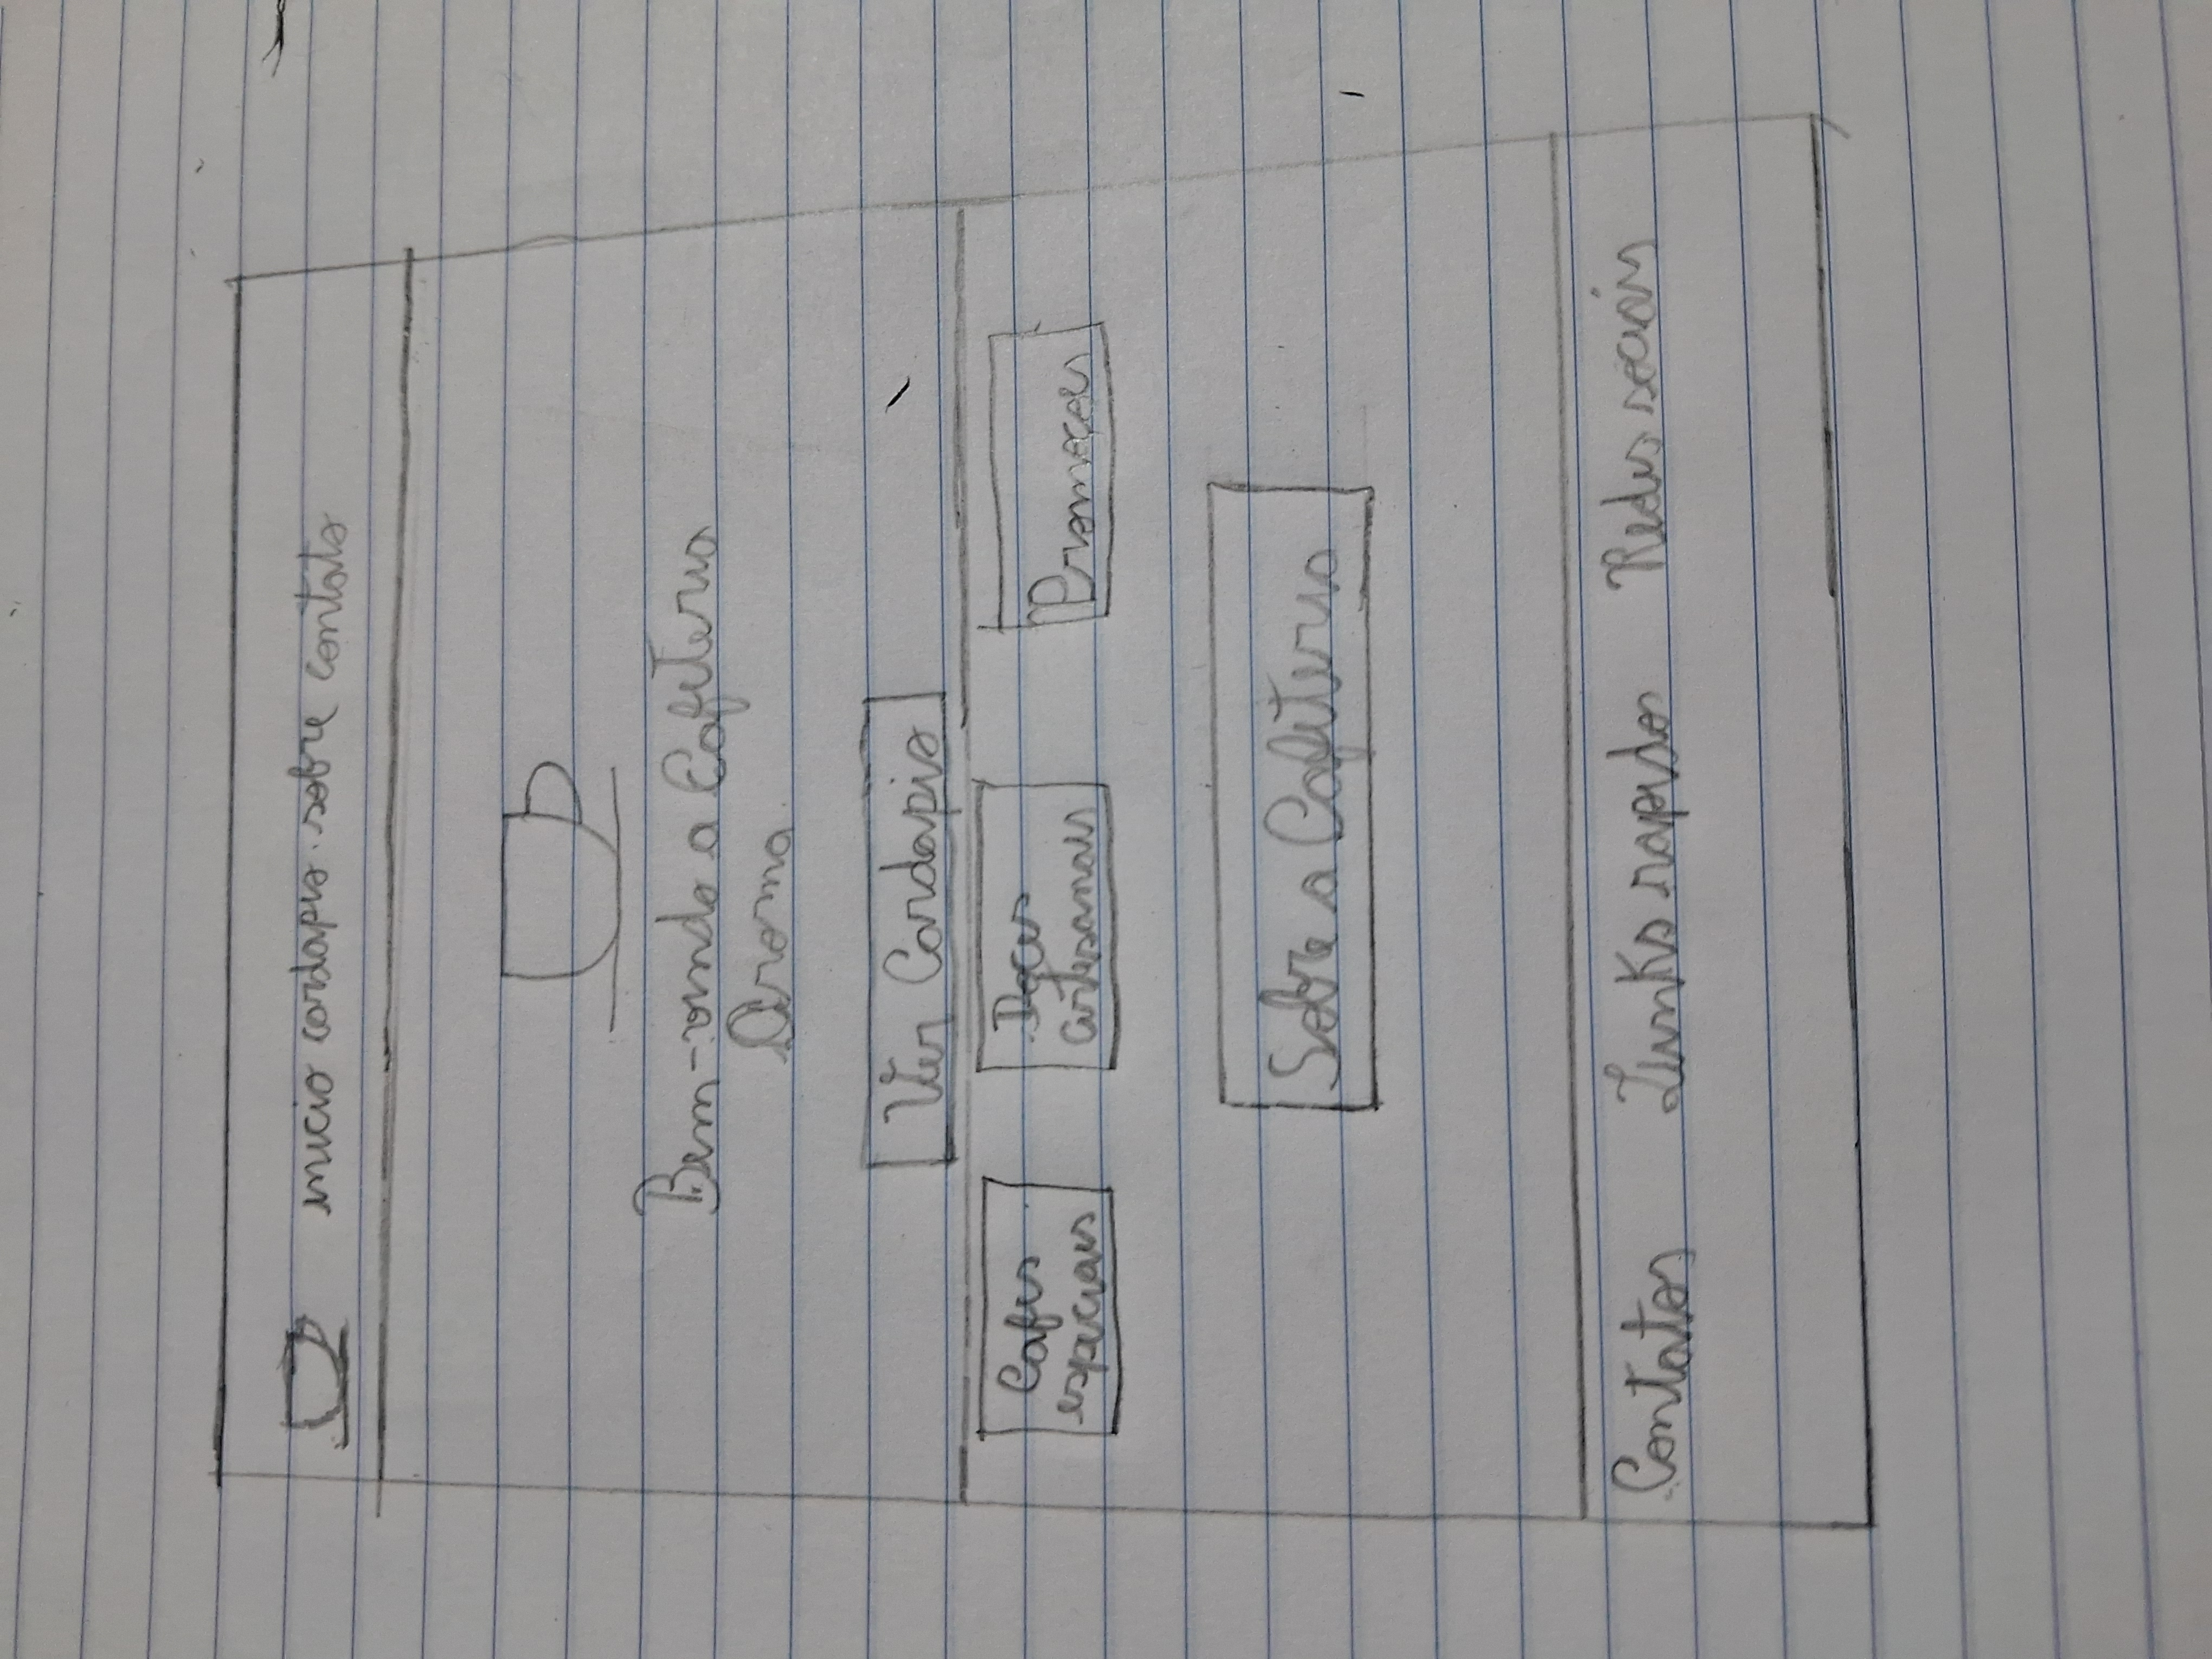 inicio cardapio sobre contato
Bem-vindo a Cafeteria
Aroma
Ver Cardapio
Cafes
especiais
Doces
artesanais
Promoçoes
Sobre a Cafeteria
Contatos Links rapidos Redes sociais